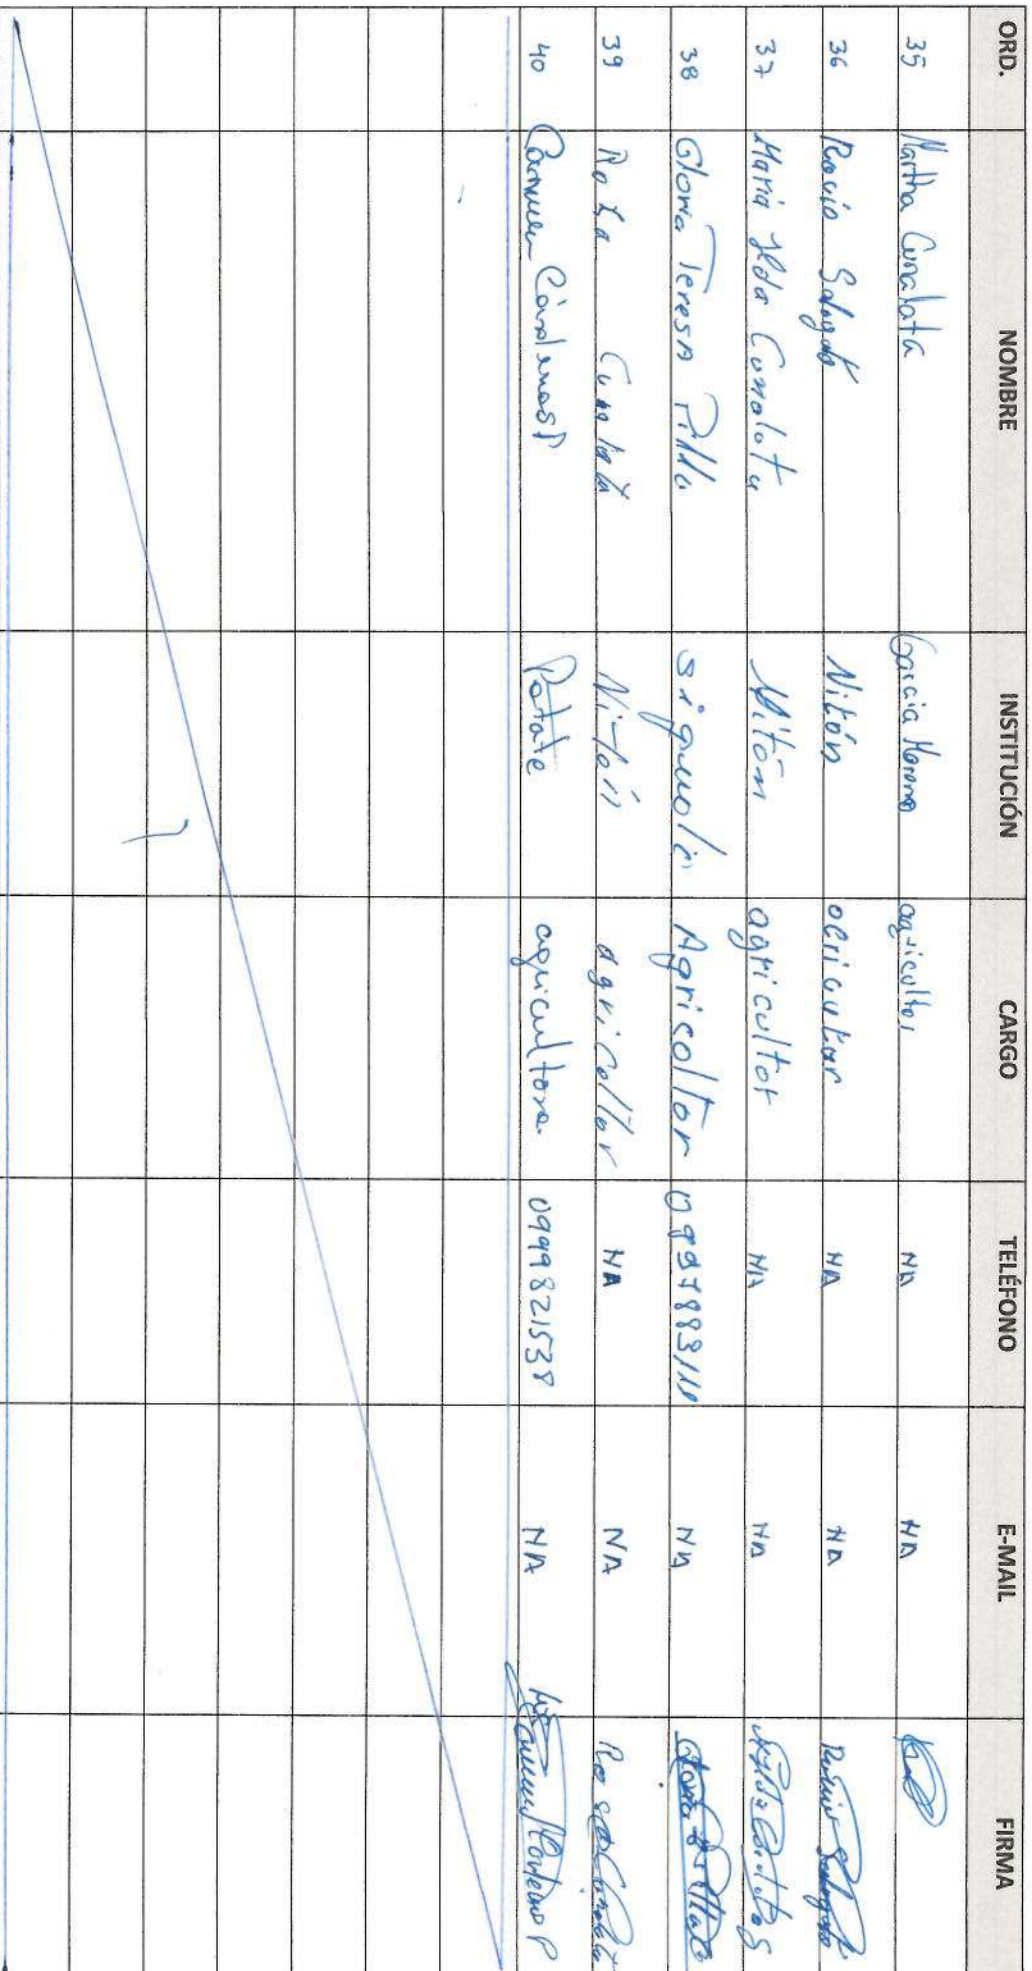 ORD. NOMBRE INSTITUCIÓN CARGO TELÉFONO E-MAIL FIRMA
35 Martha Cunalata Garcia Moreno agricultor NA NA
36 Rocio Salgado Nitón NA NA
37 Maria Ilda Cunalata Nitón agricultor NA NA
38 Gloria Teresa Pilla Agricoltor NA
39 Rosa Cunalata Nitón agricoltor NA NA Rosa Cunalata
40 Carmen Cárdenas P Patate agricultora 0999821538 NA